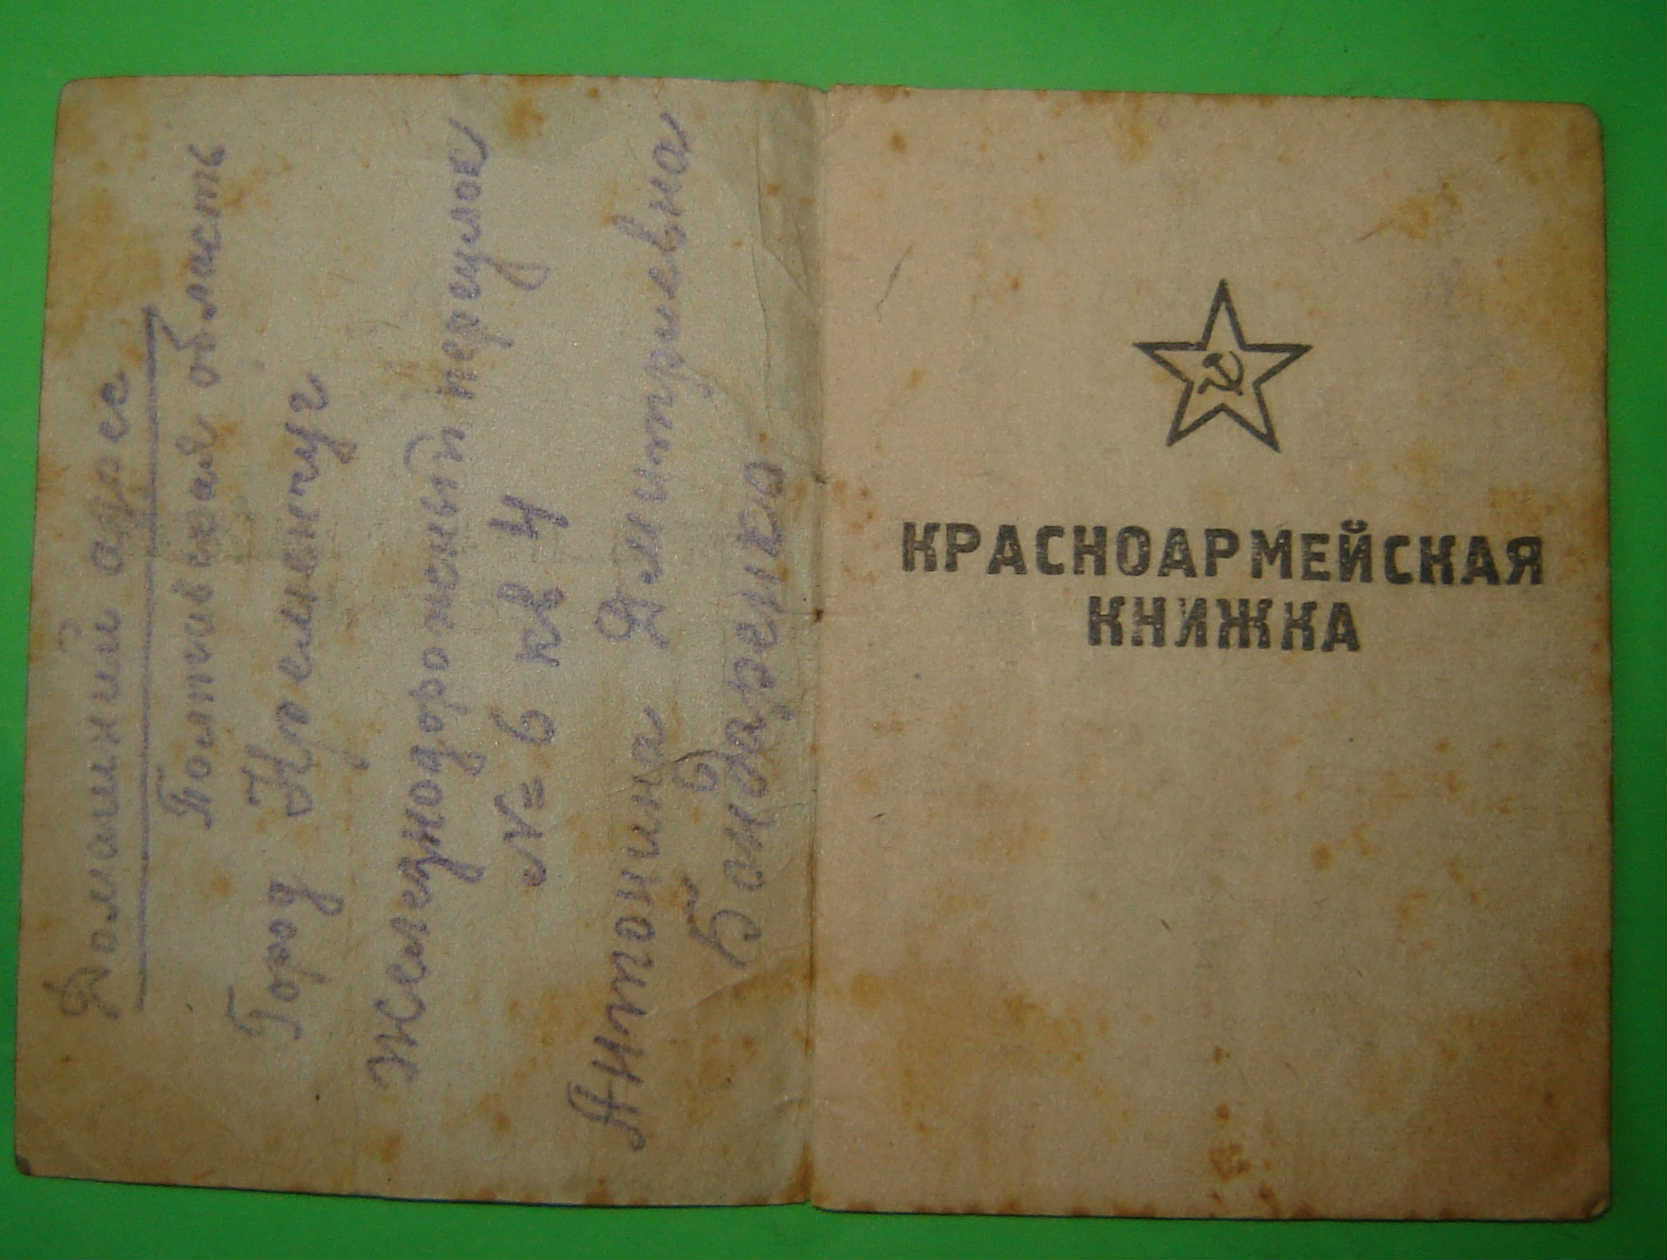 Домашний адрес
Полтавская область
Город Кременчуг
Железнодорожный переулок
N= 6 кв 4
Антонина Дмитриевна
Бондаренко
КРАСНОАРМЕЙСКАЯ
КНИЖКА